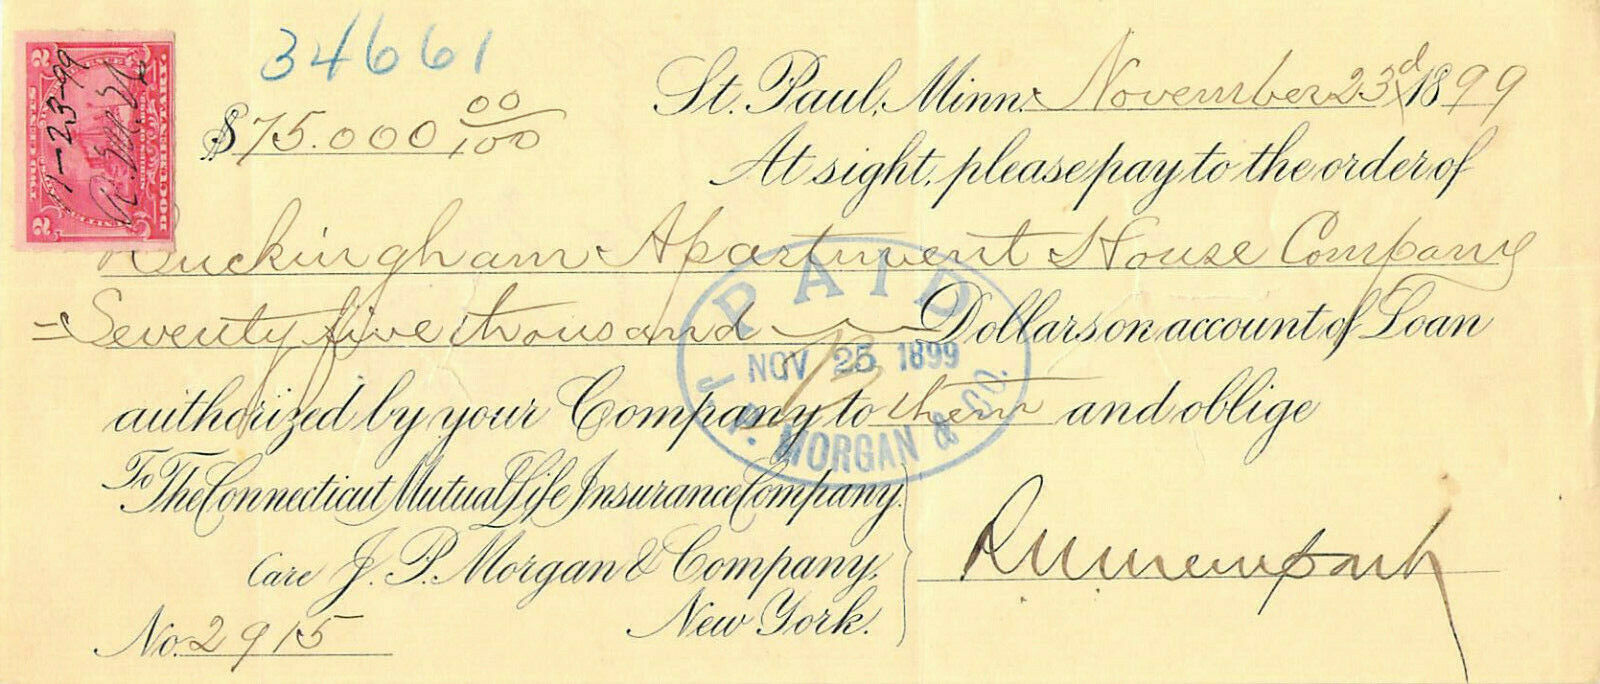 34661
2 TWO CENTS 2
SERIES OF 1898
DOCUMENTARY.
11-23-99
$75.000 00/100
St. Paul, Minn. November 23d 1899
At sight, please pay to the order of
Buckingham Apartment House Company
= Seventy five thousand Dollars on account of Loan
authorized by your Company to them and oblige
To The Connecticut Mutual Life Insurance Company.
Care J. P. Morgan & Company,
New York.
No. 2915
PAID
NOV 25 1899
J. P. MORGAN & CO.